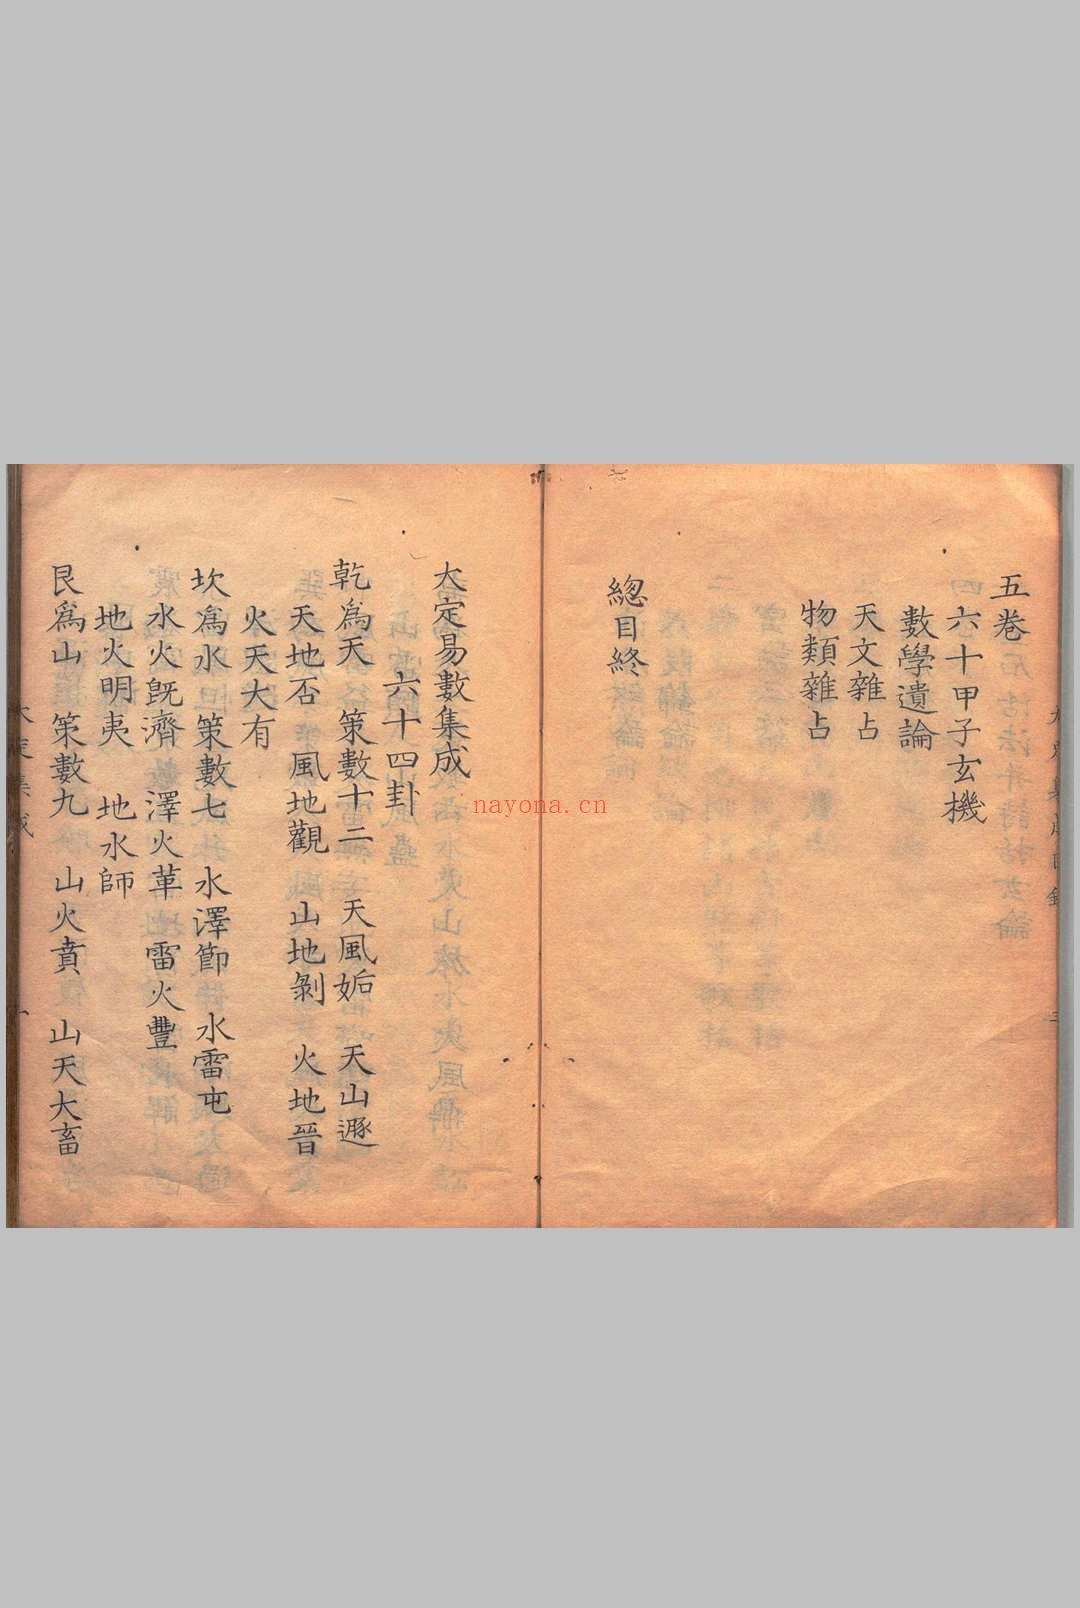 五卷
六十甲子玄機
數學遺論
天文雜占
物類雜占
總目終
大定易數集成
六十四卦
乾爲天 策數十二 天風姤 天山遯
天地否 風地觀 山地剝 火地晉
火天大有
坎爲水 策數七 水澤節 水雷屯
水火旣濟 澤火革 雷火豐
地火明夷 地水師
艮爲山 策數九 山火賁 山天大畜
nayona.cn